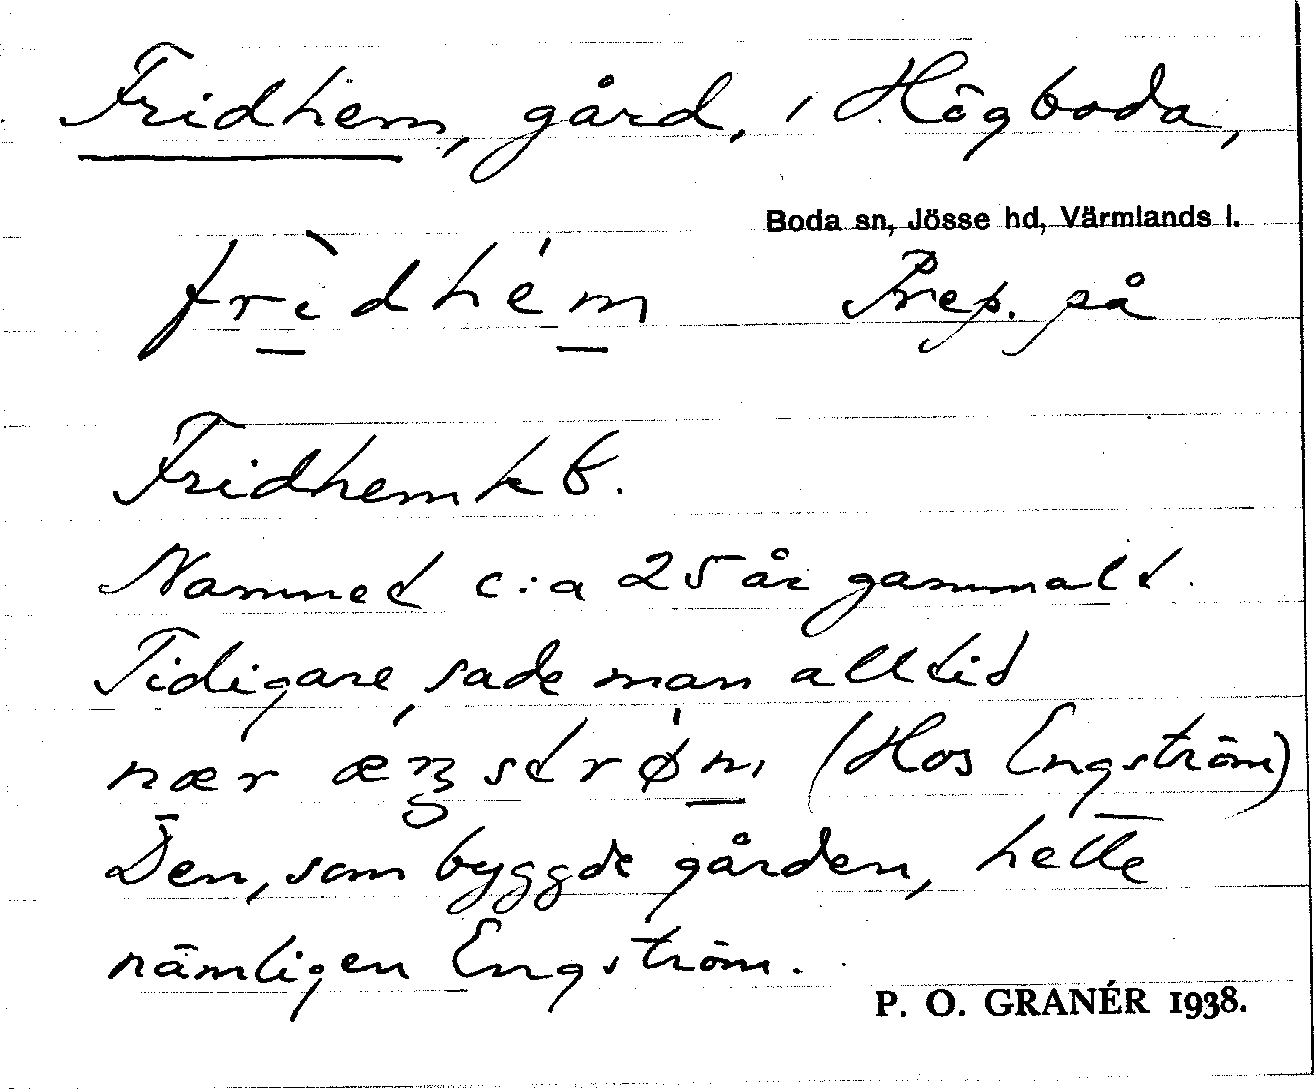 Fridhem, gård, i Högboda,
Boda sn, Jösse hd, Värmlands l.
frìdhém Prep. på
Fridhem k b.
Namnet c:a 25 år gammalt.
Tidigare sade man alltid
nær strøm (Hos Engström)
Den, som byggde gården, hette
nämligen Engström.
P. O. GRANÉR 1938.